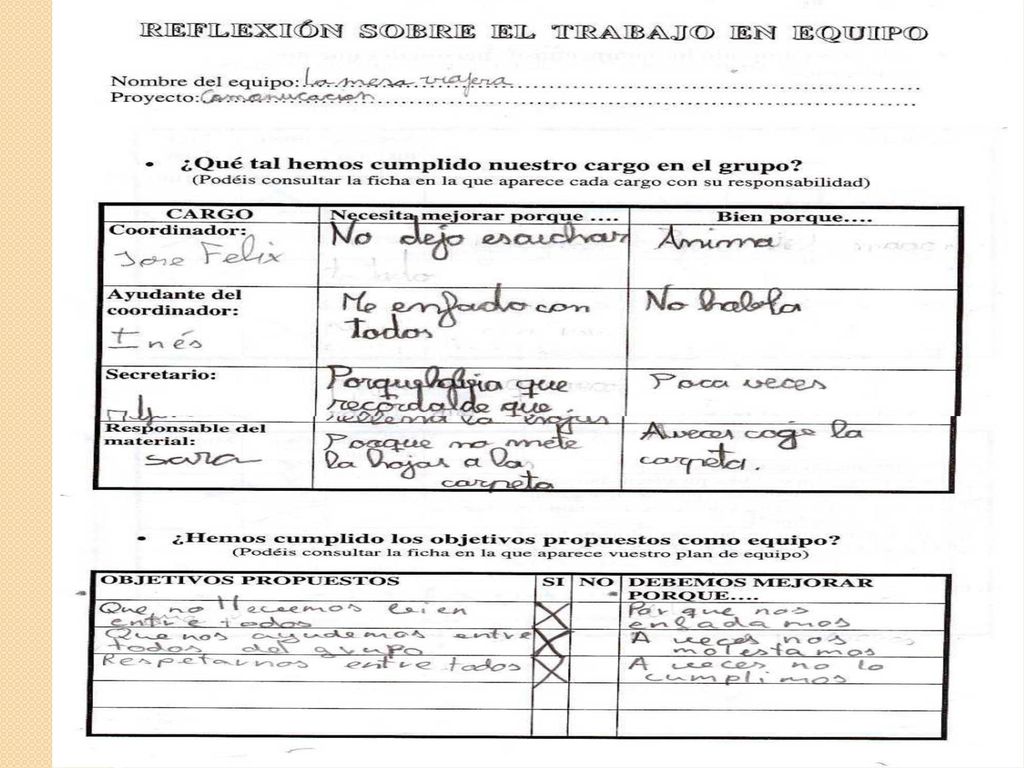 REFLEXIÓN SOBRE EL TRABAJO EN EQUIPO
Nombre del equipo: La mesa viajera
Proyecto: Comanucacion
• ¿Qué tal hemos cumplido nuestro cargo en el grupo?
(Podéis consultar la ficha en la que aparece cada cargo con su responsabilidad)
CARGO Necesita mejorar porque .... Bien porque....
Coordinador: No dejo esauchar Anima
Jose Felix
Ayudante del Me enfado con No habla
coordinador: todos
Inés
Secretario: Porque que Poca veces
recordalde que
rellena la hojas
Responsable del Porque no mete A veces coge la
material: la hojas a la carpeta.
sara carpeta
• ¿Hemos cumplido los objetivos propuestos como equipo?
(Podéis consultar la ficha en la que aparece vuestro plan de equipo)
OBJETIVOS PROPUESTOS SI NO DEBEMOS MEJORAR
PORQUE....
Que no bien Por que nos
entre todos X enfadamos
Que nos ayudemos entre A veces nos
todos del grupo X molestamos
Respetarnos entre todos X A veces no lo
cumplimos